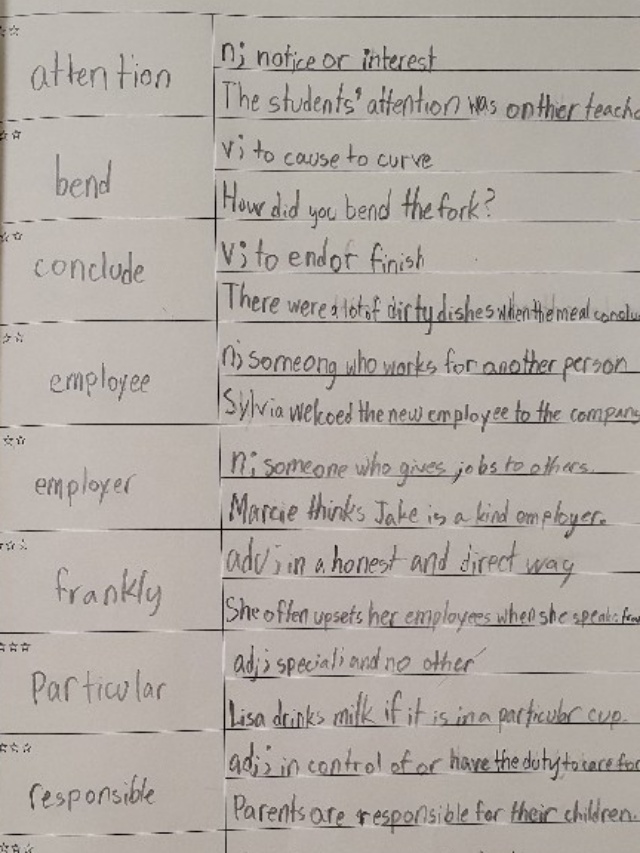 attention
n; notice or interest
The students' attention was on thier
bend
v; to cause to curve
How did you bend the fork?
conclude
v; to end or finish
There were a lot of dirty dishes when the meal
employee
n; someong who works for another person
Sylvia welcoed the new employee to the company
employer
n; someone who gives jobs to others.
Marcie thinks Jake is a kind employer.
frankly
adv; in a honest and direct way
She often upsets her employees when she speaks
Particular
adj; special; and no other
Lisa drinks milk if it is in a particular cup.
responsible
adj; in control of or have the duty to care for
Parents are responsible for their children.